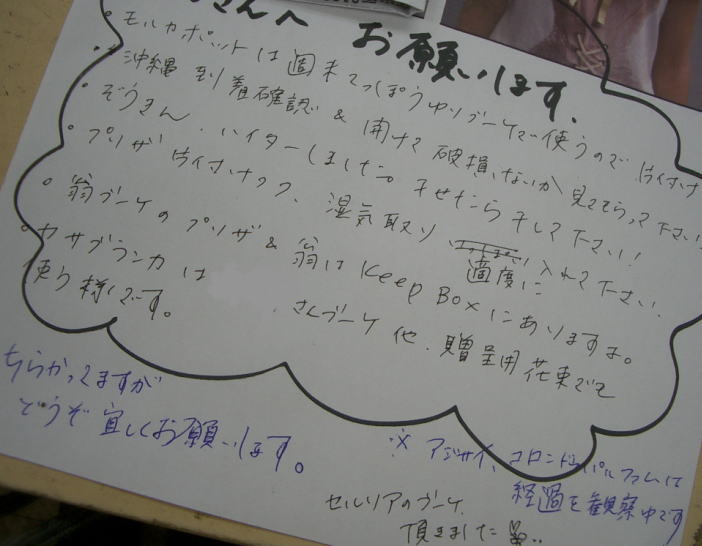 さんへ お願いします。
・モルカポットは週末てっぽうゆりブーケで使うので片付け
・沖縄到着確認&開けて破損ないか見てもらって下さい
・ぞうさん、ハイターしました。干せたら干して下さい!
。プリザ片付けナフク、湿気取り、適度に入れて下さい。
。翁ブーケのプリザ&翁はKeep Boxにありますよ。
。カサブランカは さんブーケ他、贈呈用花束でも
使う様です。
ちらかってますが
どうぞ宜しくお願いします。
※アジサイ、コロンドゥパルファムは
経過を観察中です
セルリアのブーケ
頂きました